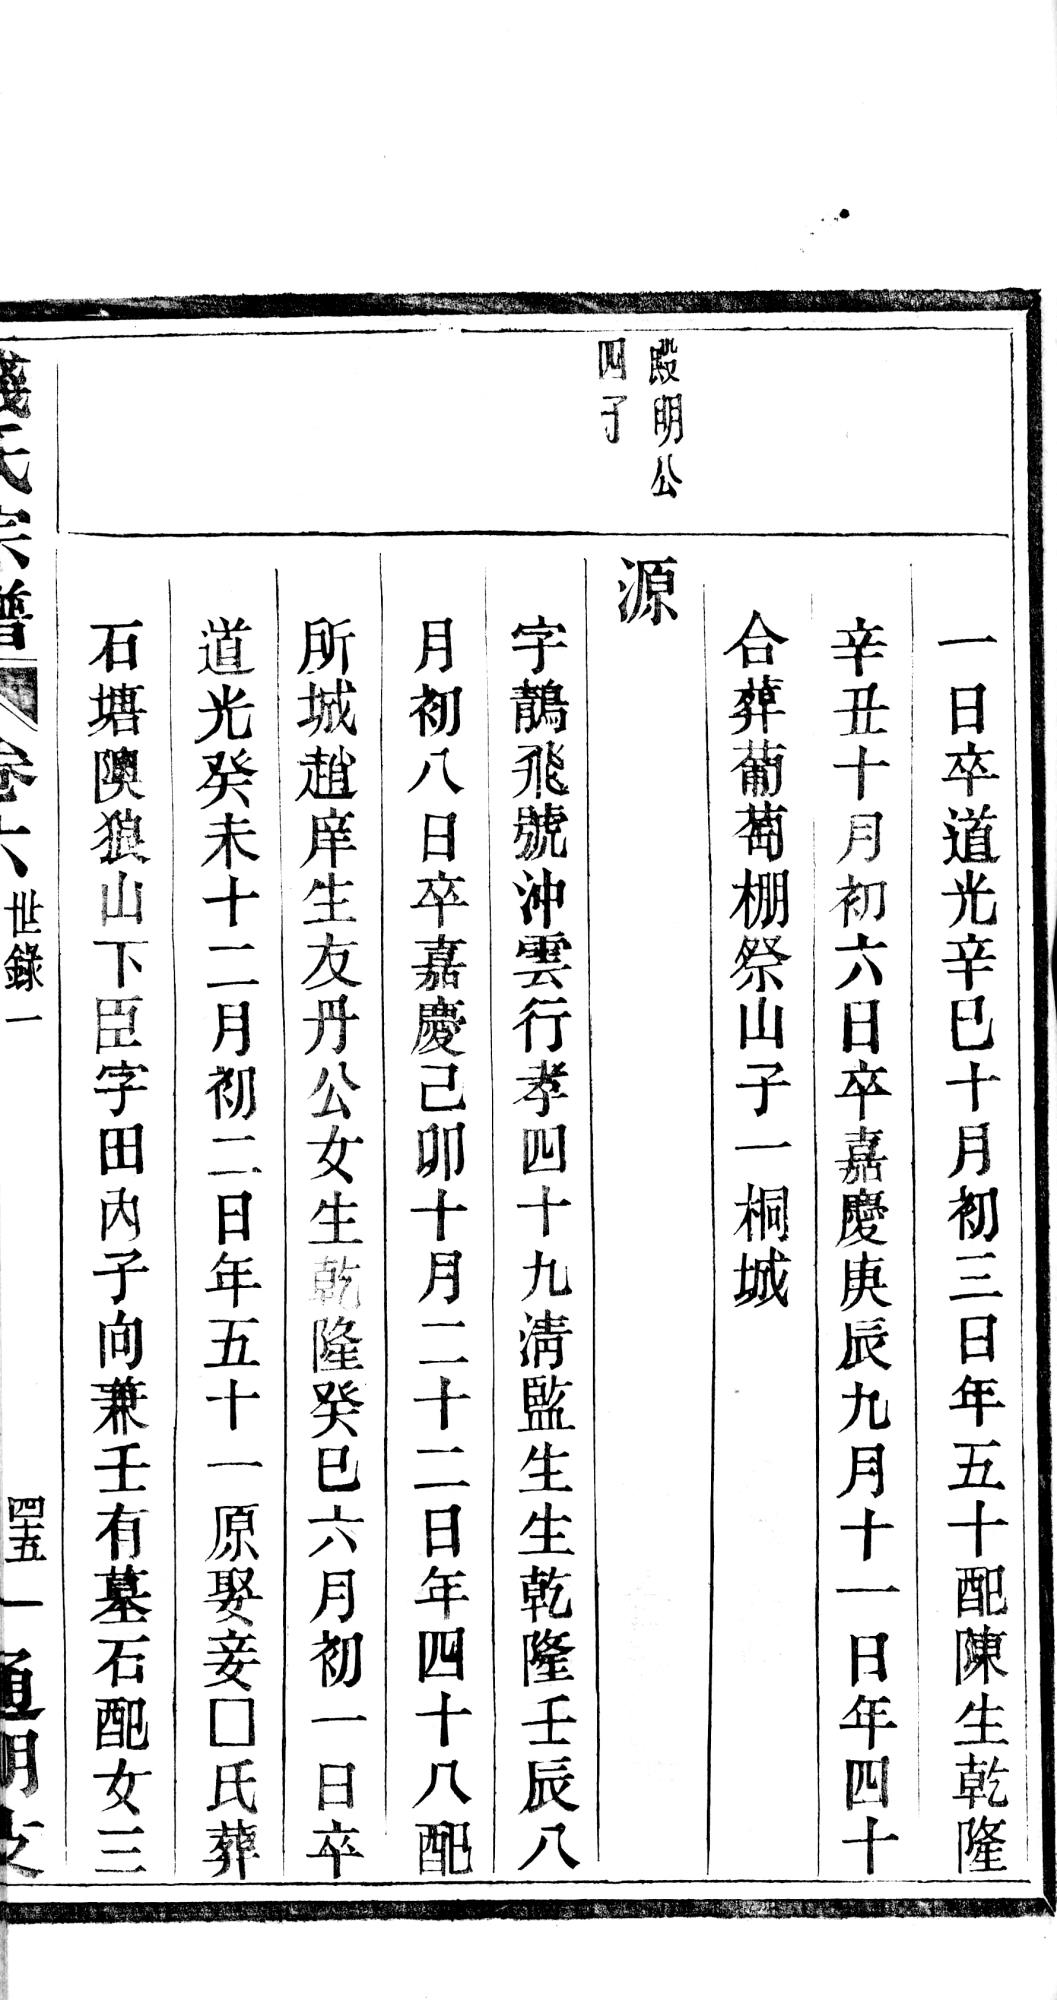 一日卒道光辛巳十月初三日年五十配陳生乾隆
辛丑十月初六日卒嘉慶庚辰九月十一日年四十
合葬葡萄棚祭山子一桐城
殿明公
四子
源
字鵲飛號沖雲行孝四十九淸監生生乾隆壬辰八
月初八日卒嘉慶己卯十月二十二日年四十八配
所城趙庠生友丹公女生乾隆癸巳六月初一日卒
道光癸未十二月初二日年五十一原娶妾□氏葬
石塘隩狼山下臣字田內子向兼壬有墓石配女三
氏宗譜 卷六 世錄一 四十五 通明支